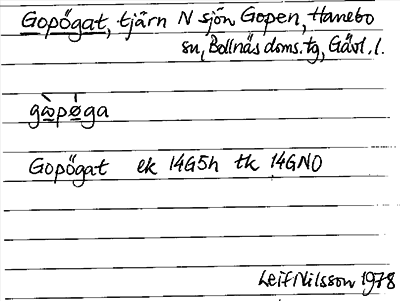 Gopögat, tjärn N sjön Gopen, Hanebo
sn, Bollnäs doms. tg, Gävl. l.
gòpǿga
Gopögat ek 14G5h tk 14GNO
Leif Nilsson 1978